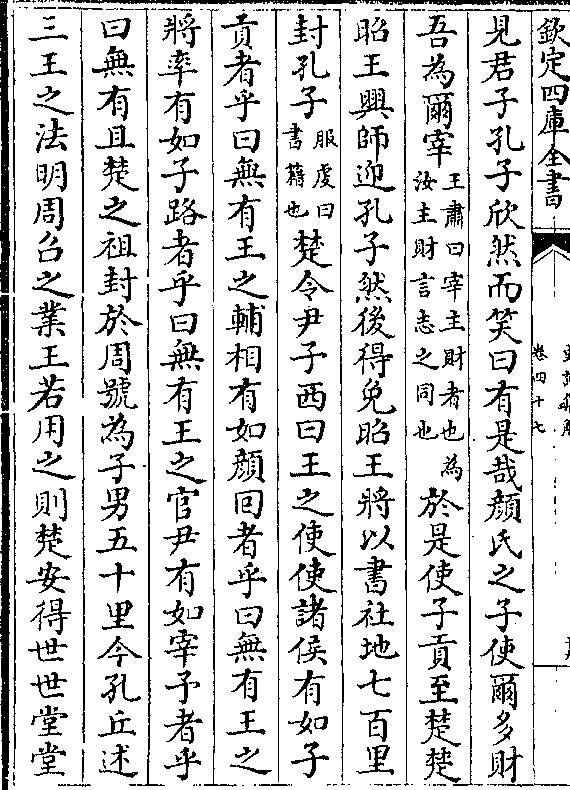 欽定四庫全書
卷四十七
見君子孔子欣然而笑曰有是哉顔氏之子使爾多財
吾為爾宰王肅曰宰主財者也為汝主財言志之同也於是使子貢至楚楚
昭王興師迎孔子然後得免昭王將以書社地七百里
封孔子服虔曰書籍也楚令尹子西曰王之使使諸侯有如子
貢者乎曰無有王之輔相有如顔回者乎曰無有王之
將率有如子路者乎曰無有王之官尹有如宰予者乎
曰無有且楚之祖封於周號為子男五十里今孔丘述
三王之法明周召之業王若用之則楚安得世世堂堂